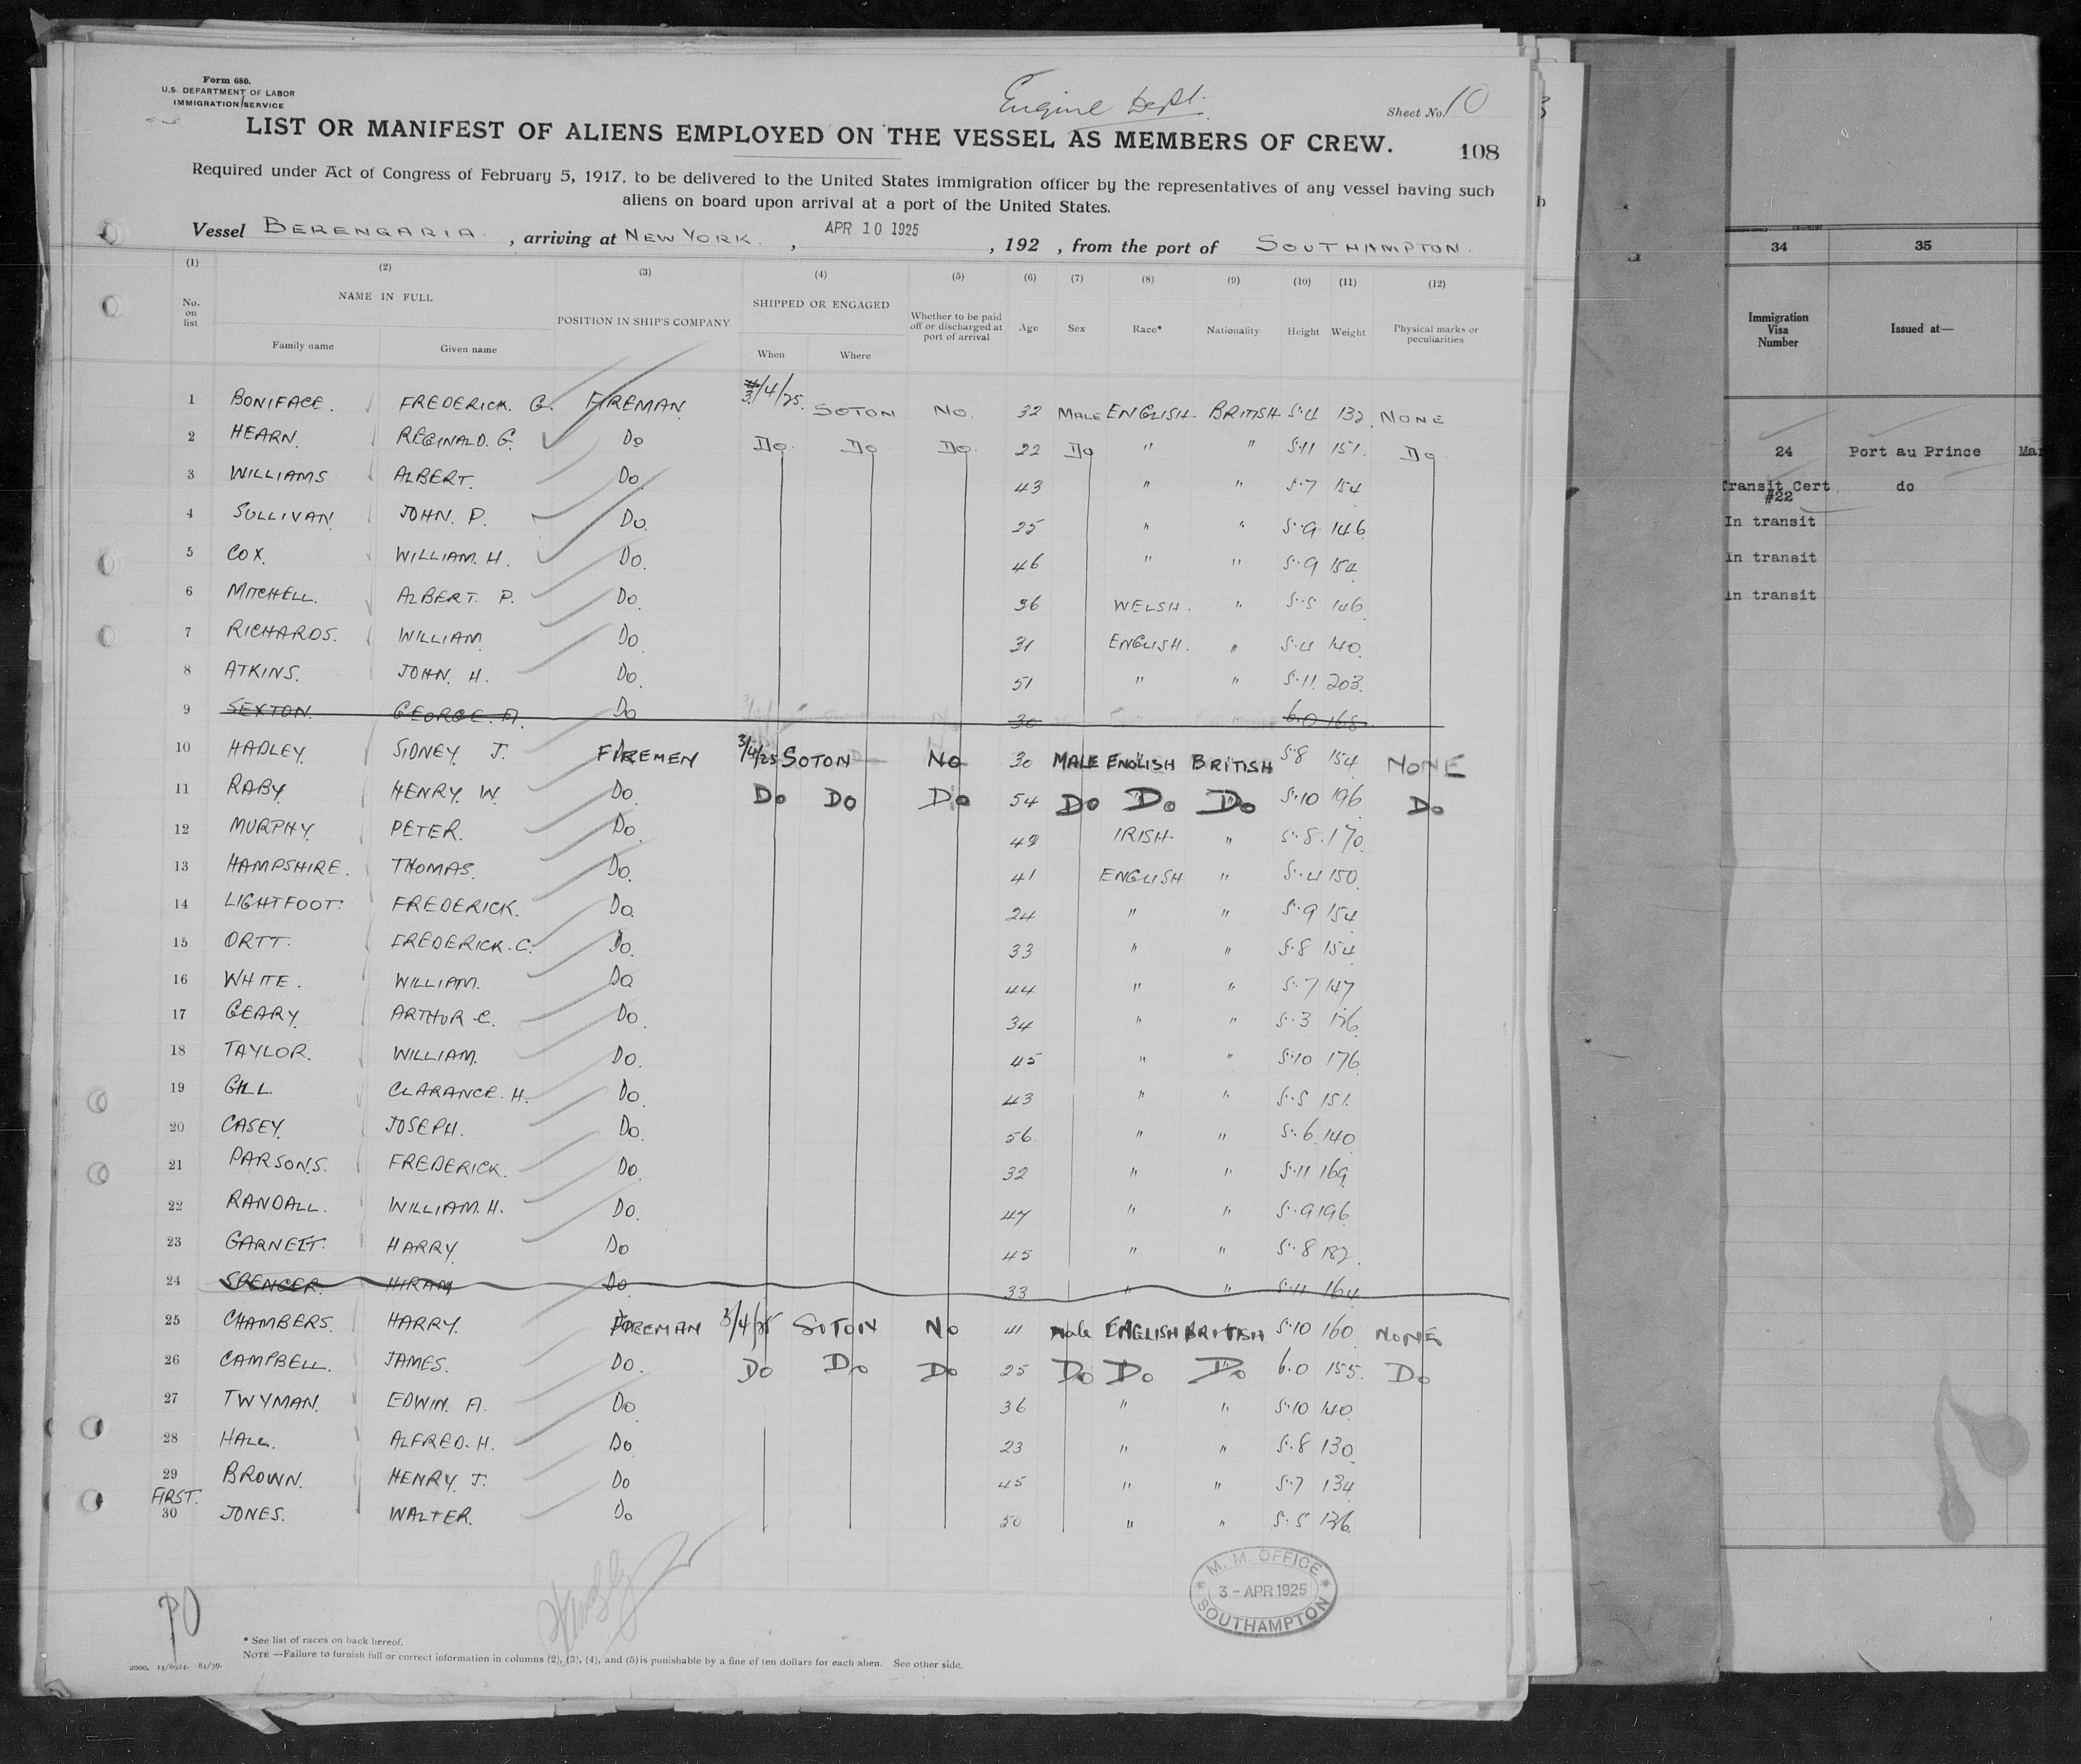 Form 680.
U.S. DEPARTMENT OF LABOR
IMMIGRATION SERVICE
Engine Dept.
Sheet No. 10
LIST OR MANIFEST OF ALIENS EMPLOYED ON THE VESSEL AS MEMBERS OF CREW.
108
Required under Act of Congress of February 5, 1917, to be delivered to the United States immigration officer by the representatives of any vessel having such
aliens on board upon arrival at a port of the United States.
Vessel BERENGARIA. , arriving at NEW YORK. , APR 10 1925 , 192 , from the port of SOUTHAMPTON.
(1) (2) (3) (4) (5) (6) (7) (8) (9) (10) (11) (12)
No. on list NAME IN FULL POSITION IN SHIP'S COMPANY SHIPPED OR ENGAGED Whether to be paid off or discharged at port of arrival Age Sex Race* Nationality Height Weight Physical marks or peculiarities
Family name Given name When Where
1 BONIFACE. FREDERICK. G. FIREMAN 3/4/25. SOTON NO. 32 MALE ENGLISH. BRITISH 5.4 132 NONE
2 HEARN. REGINALD. G. Do Do Do Do 22 Do " " 5.11 151. Do
3 WILLIAMS ALBERT. Do. 43 " " 5.7 154
4 SULLIVAN. JOHN. P. Do. 25 " " 5.9 146
5 COX. WILLIAM. H. Do. 46 " " 5.9 154
6 MITCHELL. ALBERT. P. Do. 36 WELSH. " 5.5 146
7 RICHARDS. WILLIAM. Do. 31 ENGLISH. " 5.4 140
8 ATKINS. JOHN. H. Do. 51 " " 5.11. 203.
9 SEXTON. GEORGE. A. Do 30 6.0 168
10 HADLEY. SIDNEY. J. FIREMEN 3/4/25 SOTON NO 30 MALE ENGLISH BRITISH 5.8 154 NONE
11 RABY. HENRY. W. Do. Do Do Do 54 Do Do Do 5.10 196 Do
12 MURPHY. PETER. Do. 42 IRISH. " 5.8. 170
13 HAMPSHIRE. THOMAS. Do. 41 ENGLISH " 5.4 150
14 LIGHTFOOT. FREDERICK. Do. 24 " " 5.9 154
15 ORTT. FREDERICK. C. Do. 33 " " 5.8 154
16 WHITE. WILLIAM. Do 44 " " 5.7 147
17 GEARY. ARTHUR. C. Do. 34 " " 5.3 136
18 TAYLOR. WILLIAM. Do. 45 " " 5.10 176
19 GILL. CLARANCE. H. Do. 43 " " 5.5 151.
20 CASEY. JOSEPH. Do. 56 " " 5.6. 140
21 PARSONS. FREDERICK. Do. 32 " " 5.11 169
22 RANDALL. WILLIAM. H. Do. 47 " " 5.9 196
23 GARNETT. HARRY Do 45 " " 5.8 182.
24 SPENCER. HIRAM Do. 33 " " 5.11 164
25 CHAMBERS. HARRY. FIREMAN 3/4/25 SOTON NO 41 Male ENGLISH BRITISH 5.10 160 NONE
26 CAMPBELL. JAMES. Do. Do Do Do 25 Do Do Do 6.0 155. Do
27 TWYMAN. EDWIN. A. Do 36 " " 5.10 140
28 HALL. ALFRED. H. Do 23 " " 5.8 130
29 BROWN. HENRY. J. Do 45 " " 5.7 134
FIRST.
30 JONES. WALTER. Do 50 " " 5.5 136
M. M. OFFICE
3 - APR 1925
SOUTHAMPTON
* See list of races on back hereof.
NOTE —Failure to furnish full or correct information in columns (2), (3), (4), and (5) is punishable by a fine of ten dollars for each alien. See other side.
2000. 14/6924. 84/39.
34 35
Immigration Visa Number Issued at—
24 Port au Prince
Transit Cert do
#22
In transit
In transit
In transit